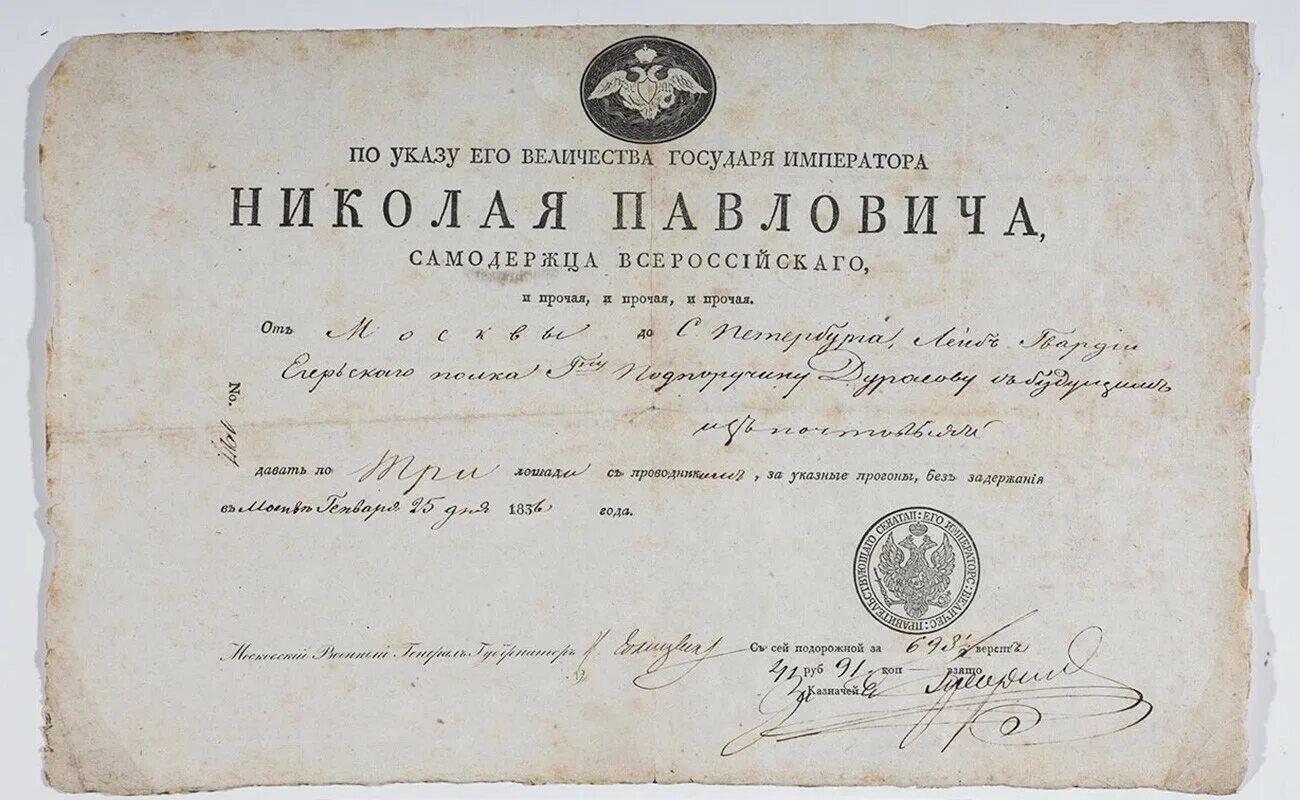 ПО УКАЗУ ЕГО ВЕЛИЧЕСТВА ГОСУДАРЯ ИМПЕРАТОРА
НИКОЛАЯ ПАВЛОВИЧА,
САМОДЕРЖЦА ВСЕРОССІЙСКАГО,
и прочая, и прочая, и прочая.
Отъ Москвы до С. Петербурга, Лейбъ Гвардіи
Егерьскаго полка Гну Подпоручику Дурасову съ будущимъ
No.
изъ почтовыхъ
давать по три лошади съ проводникомъ, за указные прогоны, безъ задержанія
въ Москвѣ Генваря 25 дня 1836 года.
ПРАВИТЕЛЬСТВУЮЩАГО СЕНАТАП: ЕГО ИМПЕРАТОРС: ВЕЛИЧЕС:
Московскій Военный Генералъ Губернаторъ
Съ сей подорожной за 698½ верстъ
41 руб 91 коп взято
Казначей